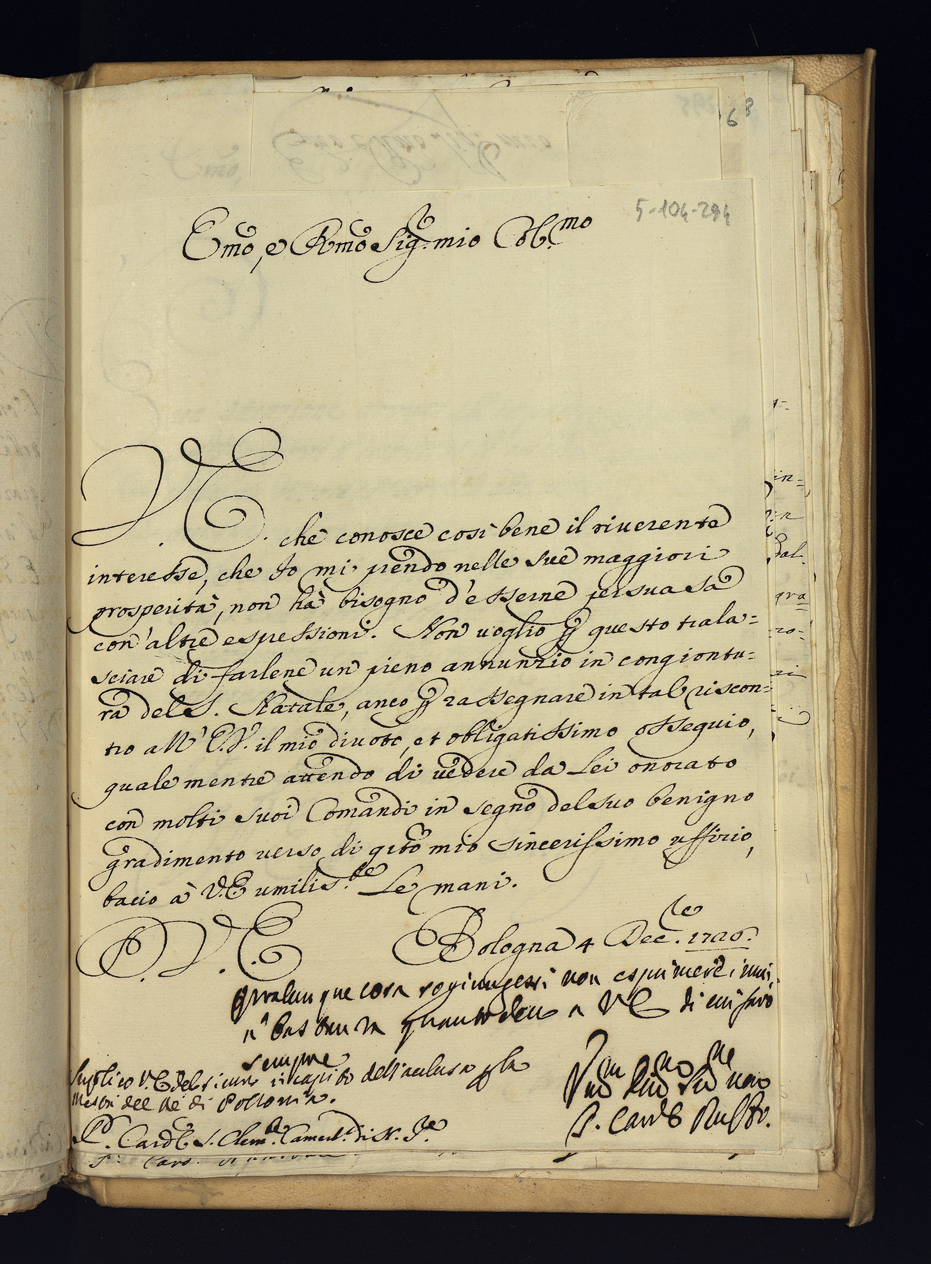 68
5-104-294
Emo, e Rmo Sig:r mio Col:mo
V. E. che conosce così bene il riverente
interesse, che Io mi prendo nelle sue maggiori
prosperità, non hà bisogno d'esserne persuasa
con'altre espressioni. Non voglio p questo trala=
sciare di farlene un pieno annunzio in congiontu=
ra del S. Natale, anco p rassegnare in tal riscon=
tro a V. E. il mio divoto, et obligatissimo ossequio,
quale mentre attendo di vedere da Lei onorato
con molti suoi Comandi in segno del suo benigno
gradimento verso di qsto mio sincerissimo uffizio,
bacio à V. E. umiliss.te Le mani.
D. V. E. Bologna 4 Dec.re 1720.
Qualunque cosa
non esprimerei mai
a bastanza quanto devo a V. E. di cui sarò
sempre
Supplico V. E. del sicuro ricapito dell'acclusa p la
del Rè di Pollonia.
Um̃o Dm̃o Se.re vero
S. Card. Ruffo.
P. Card. S. Clem.te Camerl. di N. S.re